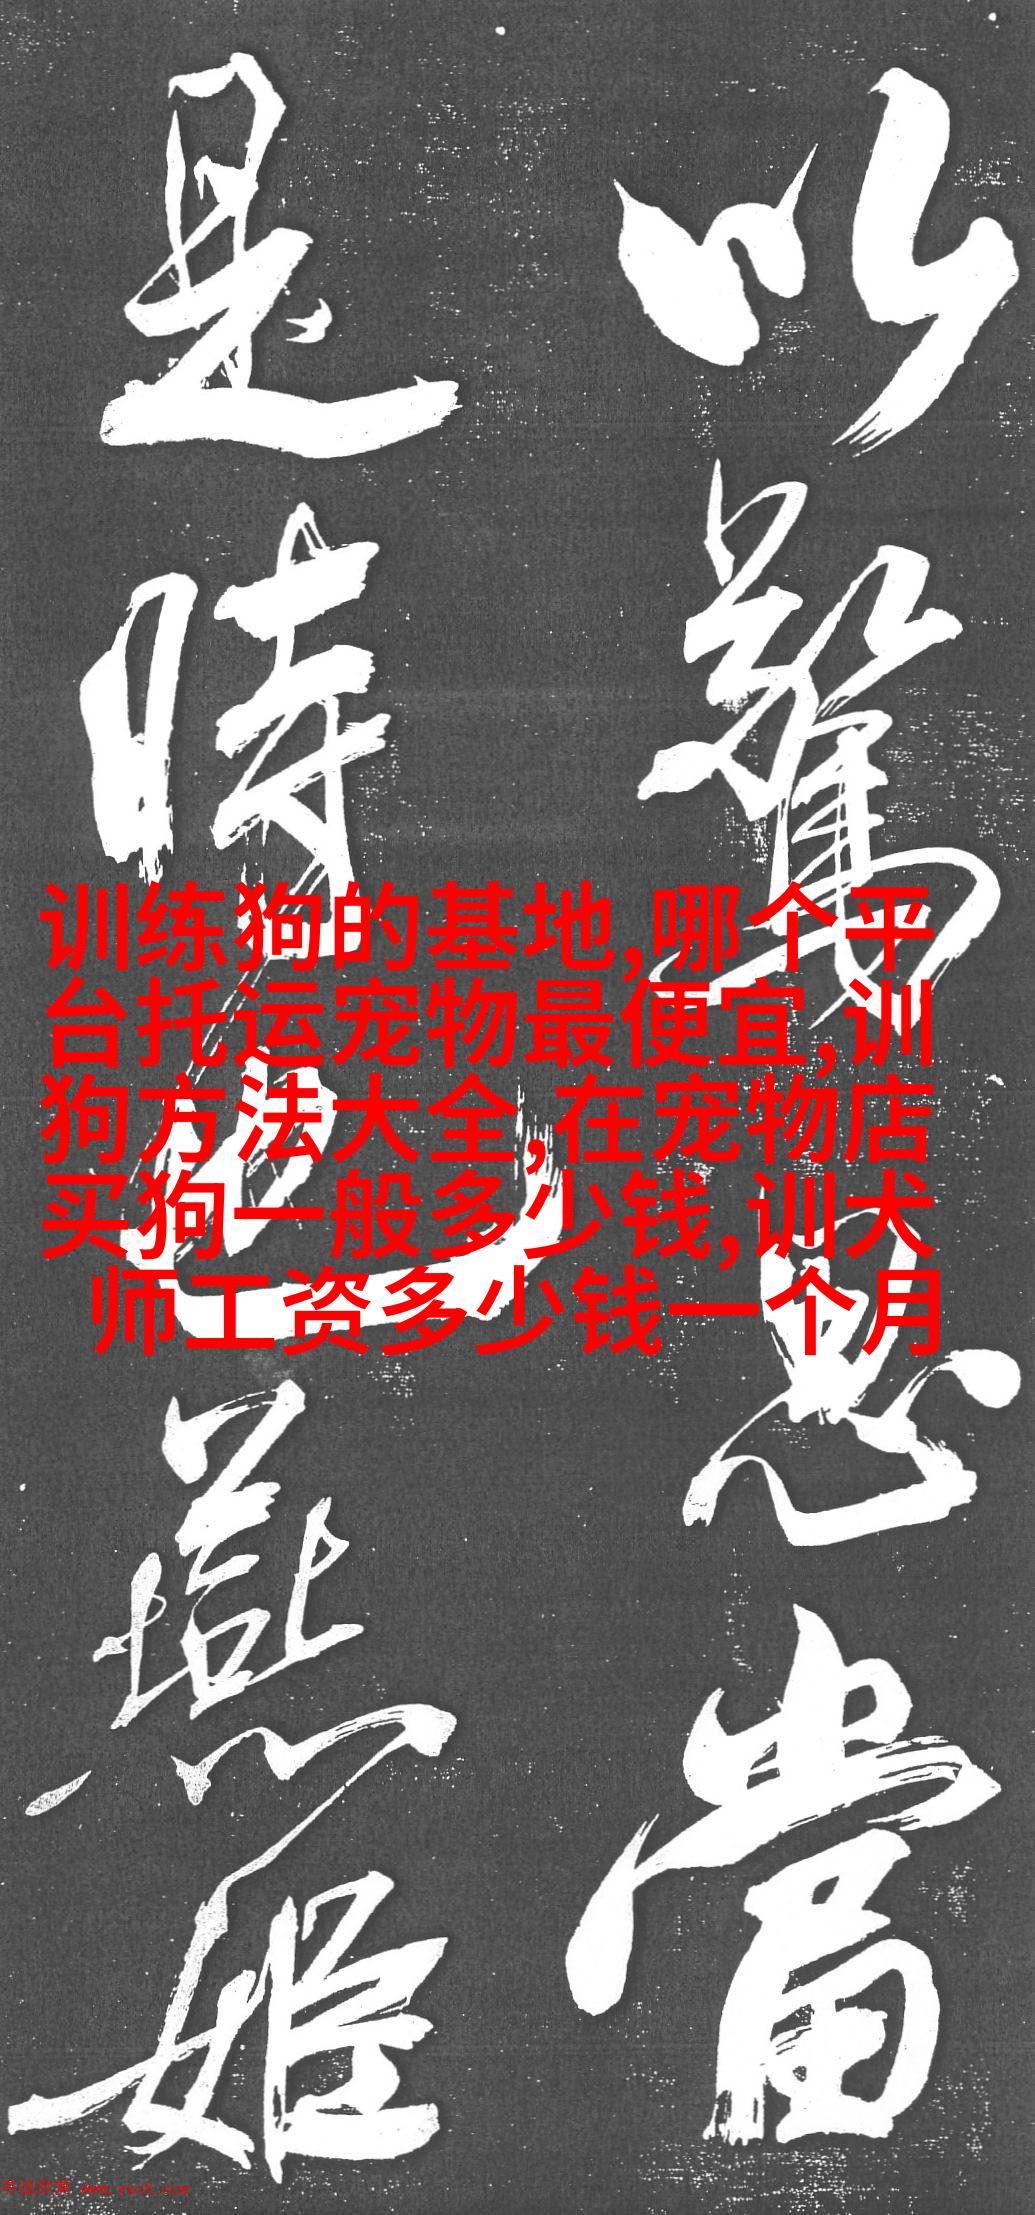 以驚思當
是時也燕姬
训练狗的基地,哪个平
台托运宠物最便宜,训
狗方法大全,在宠物店
买狗一般多少钱,训犬
师工资多少钱一个月
书法欣赏 www.yac8.com